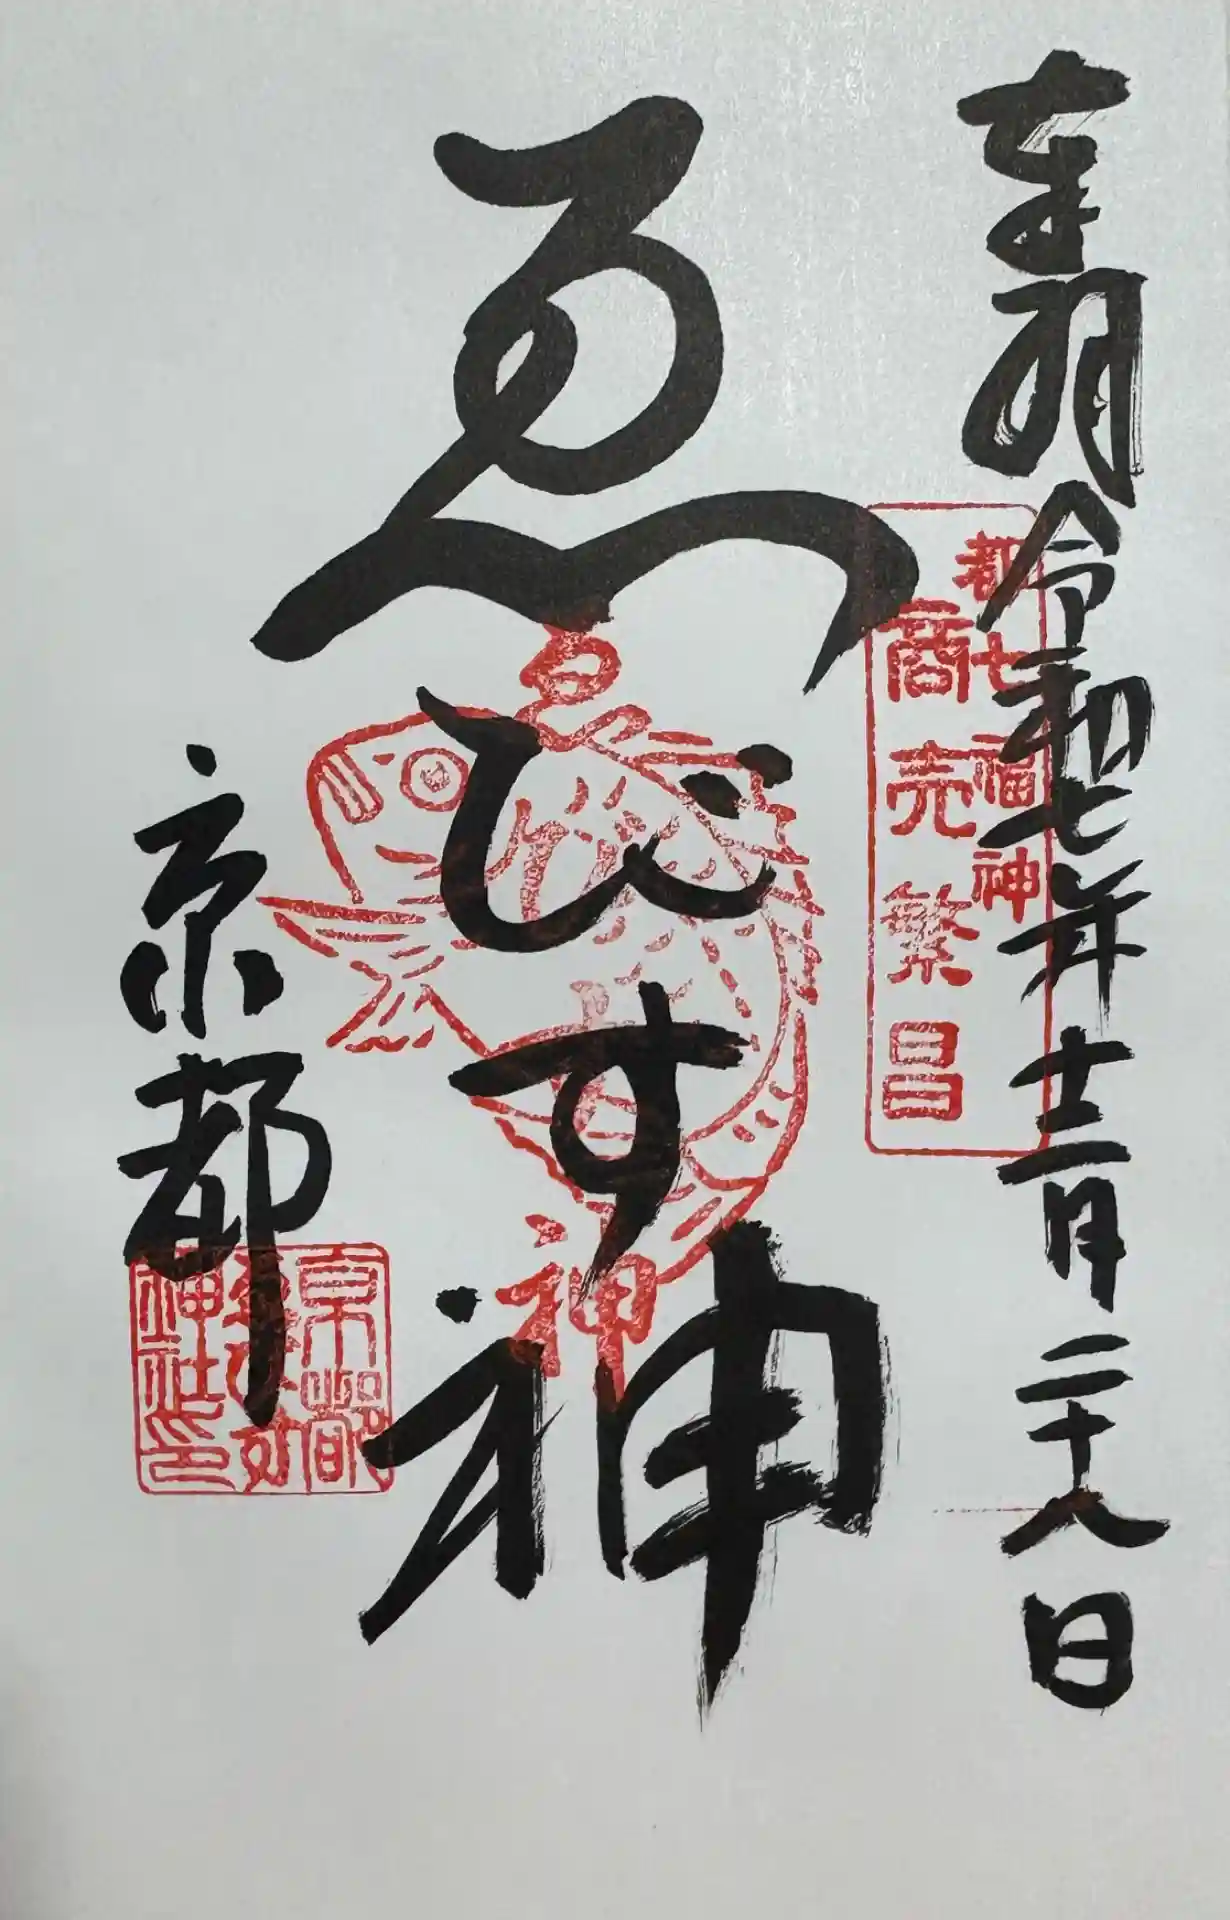 奉拝 令和七年十二月二十八日
都七福神
商売繁昌
ゑびす神
ゑ
神
京都
京都
神社印